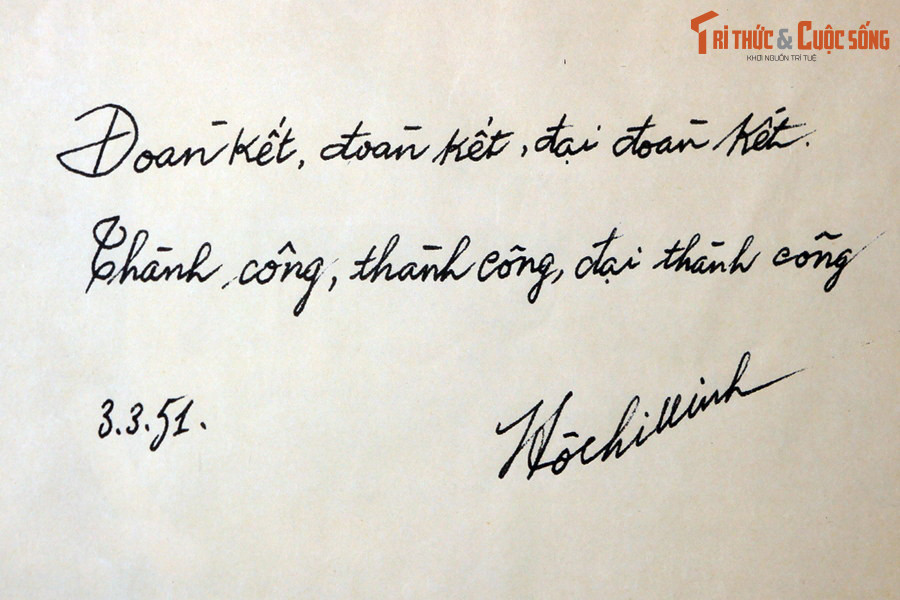 TRI THỨC & CUỘC SỐNG
KHƠI NGUỒN TRÍ TUỆ
Đoàn kết, đoàn kết, đại đoàn kết.
Thành công, thành công, đại thành công
3.3.51.
Hồ Chí Minh